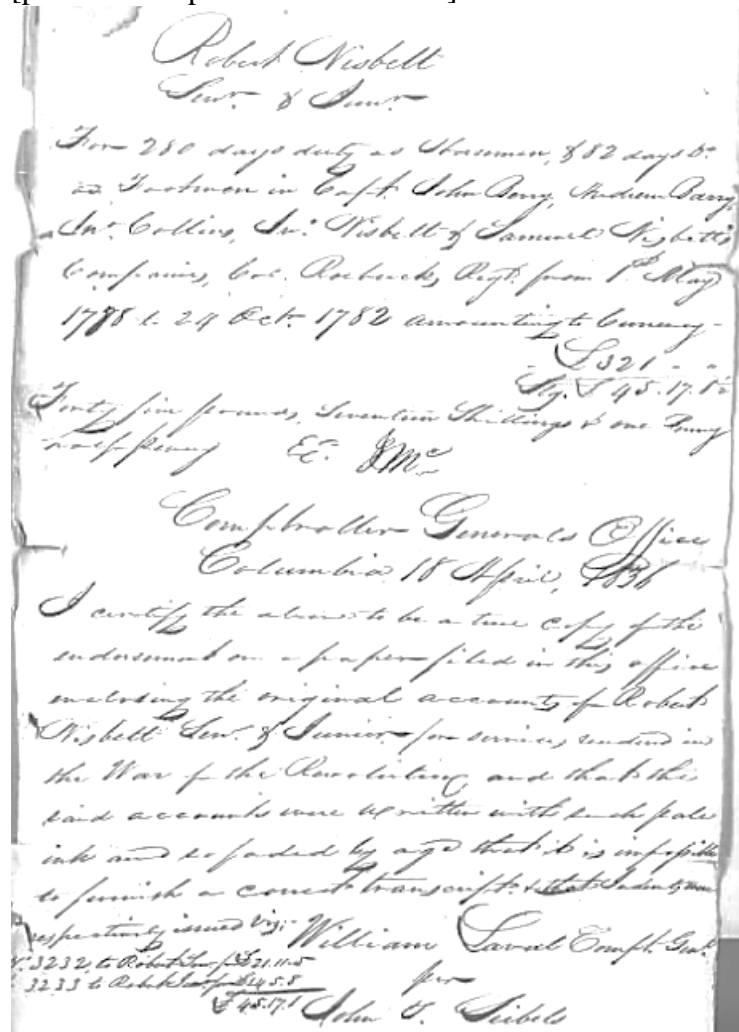 Robert Nisbett
Senr. & Junr.
For 280 days duty as Horsemen, & 82 days Do.
as Footmen in Capt. John Berry, Andrew Barry,
Jno. Collins, Jno. Nisbett & Samuel Nisbett's
Companies, Col. Roebucks, Regt. from 1st. May
1778 to 24 Oct. 1782 amounting to Currency -
£321 " "
Stg. £45.17.1½
Forty five pounds, Seventeen Shillings & one Penny
half penny
Comptroller Generals Office
Columbia 18 April, 1836
I certify the above to be a true copy of the
endorsement on a paper filed in this office
enclosing the original accounts of Robert
Nisbett Senr. & Junior for services rendered in
the War of the Revolution, and that the
said accounts were written with such pale
ink and so faded by age that it is impossible
to furnish a correct transcript & that Indents were
respectively issued Viz:-
William Laval Compt. Genl.
No. 3232, to Robert Senr. for £21.11.5
3233 to Robert Junr. for £24.5.8
£45.17.1
per
John J. Seibels